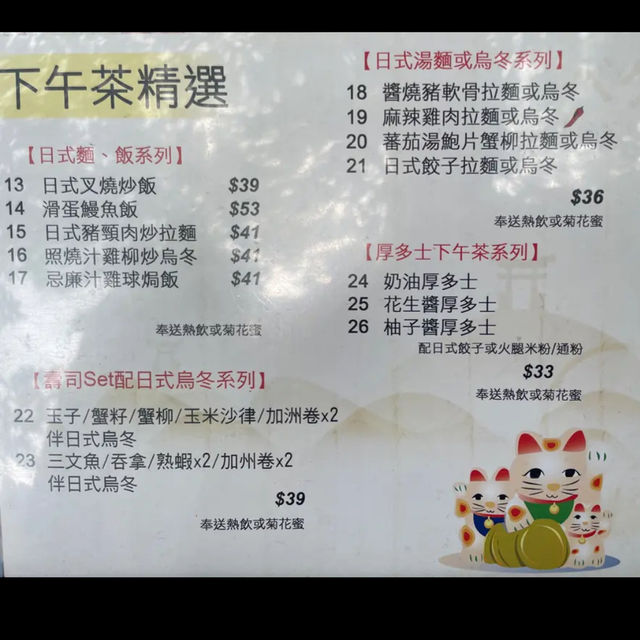 下午茶精選
【日式麵、飯系列】
13 日式叉燒炒飯 $39
14 滑蛋鰻魚飯 $53
15 日式豬頸肉炒拉麵 $41
16 照燒汁雞柳炒烏冬 $41
17 忌廉汁雞球焗飯 $41
奉送熱飲或菊花蜜
【壽司Set配日式烏冬系列】
22 玉子/蟹籽/蟹柳/玉米沙律/加洲卷x2
伴日式烏冬
23 三文魚/吞拿/熟蝦x2/加州卷x2
伴日式烏冬
$39
奉送熱飲或菊花蜜
【日式湯麵或烏冬系列】
18 醬燒豬軟骨拉麵或烏冬
19 麻辣雞肉拉麵或烏冬
20 蕃茄湯鮑片蟹柳拉麵或烏冬
21 日式餃子拉麵或烏冬
$36
奉送熱飲或菊花蜜
【厚多士下午茶系列】
24 奶油厚多士
25 花生醬厚多士
26 柚子醬厚多士
配日式餃子或火腿米粉/通粉
$33
奉送熱飲或菊花蜜